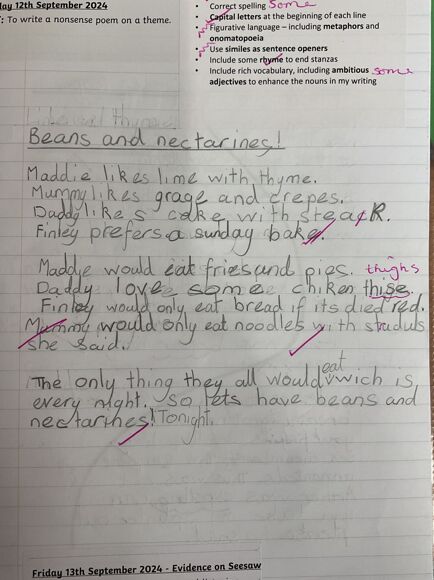 lay 12th September 2024
: To write a nonsense poem on a theme.
Correct spelling some
Capital letters at the beginning of each line
Figurative language – including metaphors and
onomatopoeia
Use similes as sentence openers
Include some rhyme to end stanzas
Include rich vocabulary, including ambitious some
adjectives to enhance the nouns in my writing
Beans and nectarines!
Maddie likes lime with thyme.
Mummy likes grage and crepes.
Daddy likes cake with steak.
Finley prefers a sunday bake.
Maddie would eat fries and pies. thighs
Daddy love some chiken thise.
Finley would only eat bread if its died red.
Mummy would only eat noodles with studuls
she said.
eat
The only thing they all would wich is
every night. so lets have beans and
nectarines! Tonight.
Friday 13th September 2024 - Evidence on Seesaw